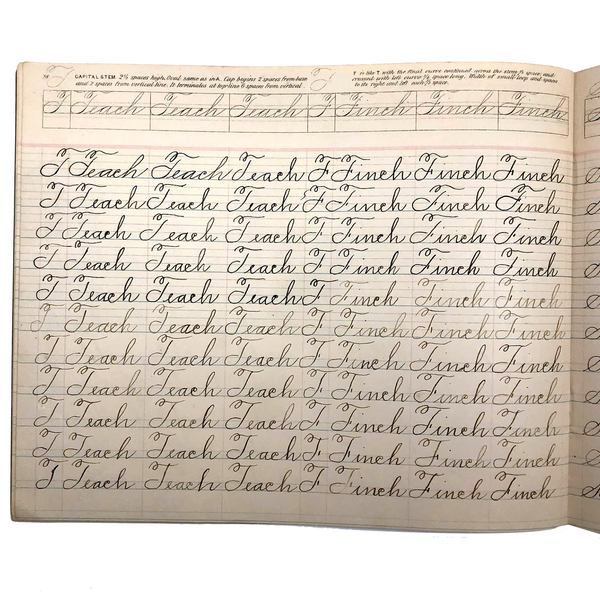 CAPITAL STEM. 2½ spaces high. Oval same as in A. Cap begins 2 spaces from base
and 2 spaces from vertical line. It terminates at top line
F is like T with the final curve continued across the stem ½ space; and
crossed with left curve ½ space long. Width of small loop and spaces
to its right and left each ⅓ space.
T Teach Teach Teach F Finch Finch Finch
T Teach Teach Teach F Finch Finch Finch
T Teach Teach Teach F Finch Finch Finch
T Teach Teach Teach F Finch Finch Finch
T Teach Teach Teach F Finch Finch Finch
T Teach Teach Teach F Finch Finch Finch
T Teach Teach Teach F Finch Finch Finch
T Teach Teach Teach F Finch Finch Finch
T Teach Teach Teach F Finch Finch Finch
T Teach Teach Teach F Finch Finch Finch
T Teach Teach Teach F Finch Finch Finch
T Teach Teach Teach F Finch Finch Finch